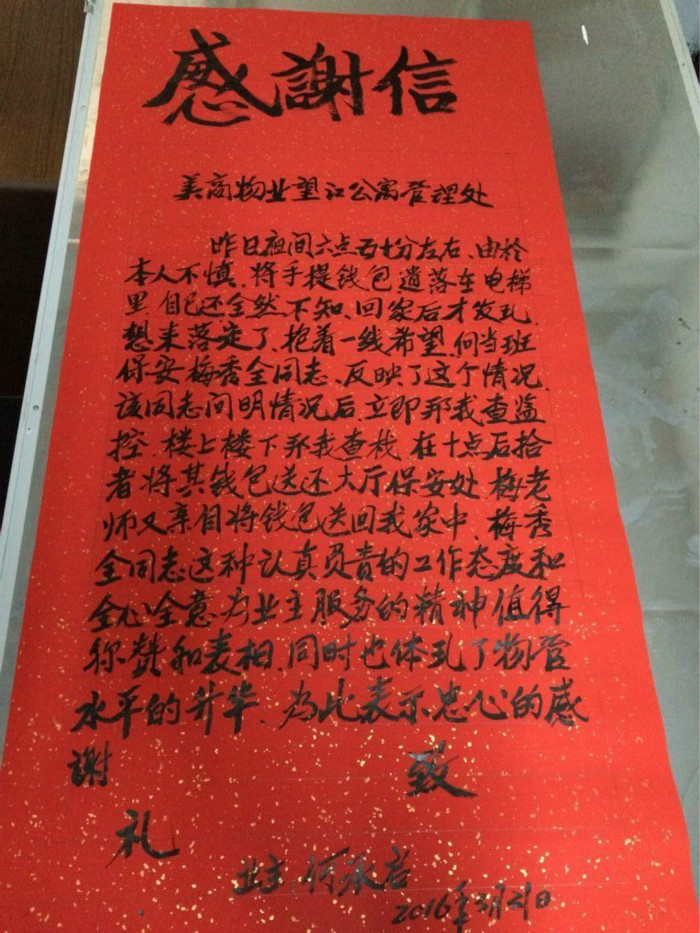 感謝信
美商物业望江公寓管理处
昨日夜间六点五十分左右、由於
本人不慎、将手提钱包遗落在电梯
里、自己还全然不知、回家后才发现、
想来落定了、抱着一线希望、向当班
保安梅秀全同志、反映了这个情况、
该同志问明情况后、立即帮我查监
控、楼上楼下帮我查找、在十点后拾
者将其钱包送还大厅保安处、梅老
师又亲自将钱包送回我家中、梅秀
全同志这种认真负责的工作态度和
全心全意为业主服务的精神值得
称赞和表相、同时也体现了物管
水平的升华、為此表示忠心的感
謝 致
礼
业主 何承
2016年3月21日